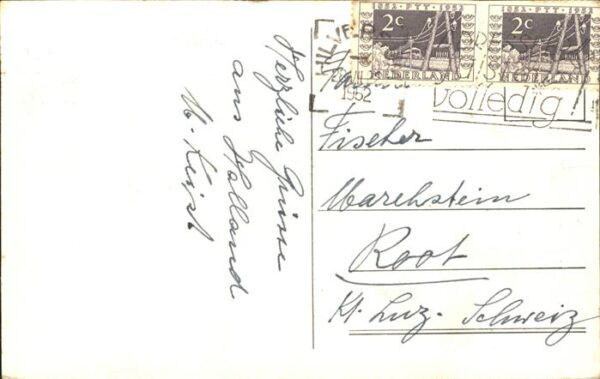 Herzliche Grüsse
aus Holland
1852 PTT 1952
2c
NEDERLAND
1852 PTT 1952
2c
NEDERLAND
HILVERSUM
1952
volledig!
Familie
Fischer
Marchstein
Root
Kt. Luz. Schweiz